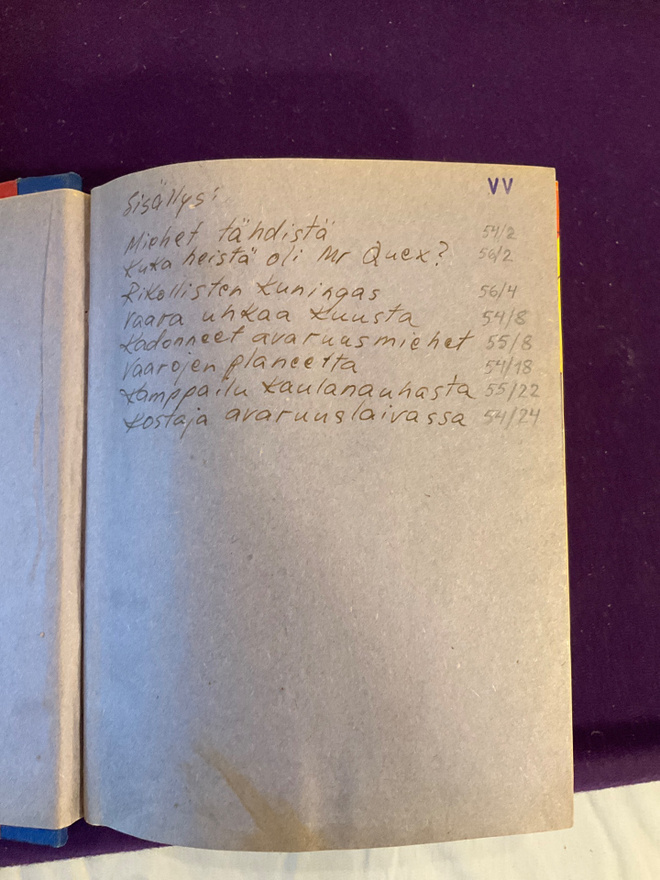 VV
Sisällys:
Miehet tähdistä 54/2
Kuka heistä oli Mr Quex? 56/2
Rikollisten Kuningas 56/4
Vaara uhkaa Kuusta 54/8
Kadonneet avaruusmiehet 55/8
Vaarojen planeetta 54/18
Kamppailu Kaulanauhasta 55/22
Kostaja avaruuslaivassa 54/24